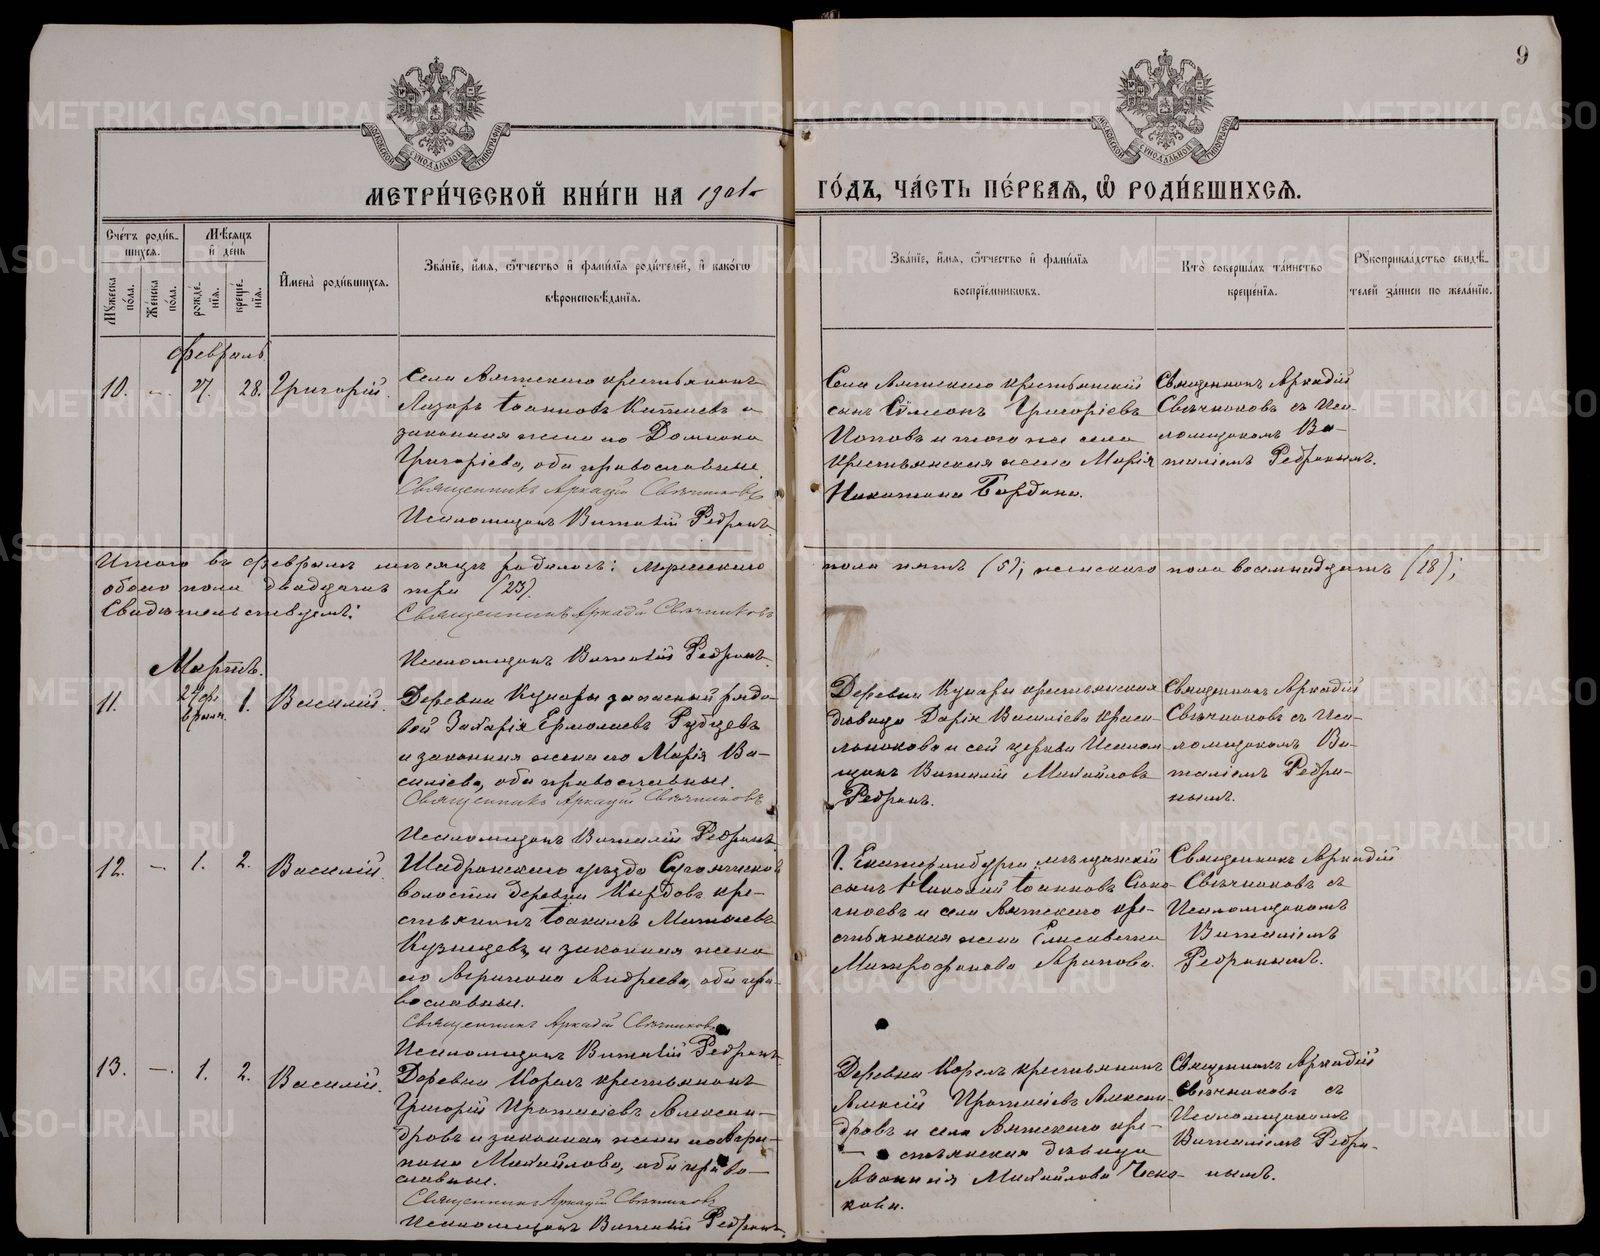 9
МЕТРИ́ЧЕСКОЙ КНИ́ГИ НА 1901 ГО́ДЪ, ЧА́СТЬ ПЕ́РВАѦ, Ѽ РОДИ́ВШИХСѦ.
Сче́тъ роди́в-
шихсѧ.
Мꙋ́жеска по́ла.
Же́нска по́ла.
Мѣ́сѧцъ и де́нь
рожде́-
нїѧ.
креще́-
нїѧ.
Имена̀ роди́вшихсѧ.
Зва́нїе, и́мѧ, ѻ҆́тчество и фами́лїѧ роди́телей, и како́гѡ
вѣроисповѣ́данїѧ.
Зва́нїе, и́мѧ, ѻ҆́тчество и фами́лїѧ
воспрїе́мниковъ.
Кто̀ соверша́лъ та́инство
креще́нїѧ.
Рꙋкоприкла́дство свидѣ́-
телей за́писи по жела́нїю.
Февраль
10. – 27. 28. Григорій.
Села Аятскаго крестьянинъ
Лазарь Іоанновъ Китаевъ и
законная жена его Домника
Григоріева, оба православные
Священникъ Аркадій Свѣчниковъ
Псаломщикъ Виталій Ребринъ
Села Аятскаго крестьянскій
сынъ Сѵмеонъ Григоріевъ
Поповъ и того же села
крестьянская жена Марія
Священникъ Аркадій
Свѣчниковъ съ Пса-
ломщикомъ Ви-
таліемъ Ребринымъ.
Итого въ февралѣ мѣсяцѣ родилось: мужескаго пола пять (5); женскаго пола восемнадцать (18);
обоего пола двадцать три (23).
Свидѣтельствуемъ: Священникъ Аркадій Свѣчниковъ
Псаломщикъ Виталій Ребринъ
Мартъ.
11. 27 фе-
враля. 1. Василій.
Деревни Кунары запасный рядо-
вой Захарія Ермолаевъ Рубцевъ
и законная жена его Марія Ва-
силіева, оба православные.
Священникъ Аркадій Свѣчниковъ
Псаломщикъ Виталій Ребринъ
Деревни Кунары крестьянская
дѣвица Дарія Василіева Краси-
льникова и сей церкви Псалом-
щикъ Виталій Михайловъ
Ребринъ.
Священникъ Аркадій
Свѣчниковъ съ Пса-
ломщикомъ Ви-
таліемъ Ребри-
нымъ.
12. – 1. 2. Василій.
Шадринскаго уѣзда
волости деревни кре-
стьянинъ Іоакимъ Матѳеевъ
Кузнецевъ и законная жена
его Агрипина Андреева, оба пра-
вославные.
Священникъ Аркадій Свѣчниковъ
Псаломщикъ Виталій Ребринъ
Г. Екатеринбурга мѣщанскій
сынъ Николай Іоанновъ
и села Аятскаго кре-
стьянская жена Елисавета
Митрофанова Арапова.
Священникъ Аркадій
Свѣчниковъ съ
Псаломщикомъ
Виталіемъ
Ребринымъ.
13. – 1. 2. Василій.
Деревни Корелъ крестьянинъ
Григорій Протасіевъ Алексан-
дровъ и законная жена его Агри-
пина Михайлова, оба право-
славные.
Священникъ Аркадій Свѣчниковъ
Псаломщикъ Виталій Ребринъ
Деревни Корелъ крестьянинъ
Алексій Протасіевъ Алексан-
дровъ и села Аятскаго кре-
стьянская дѣвица
Михайлова
Священникъ Аркадій
Свѣчниковъ съ
Псаломщикомъ
Виталіемъ Ребри-
нымъ.